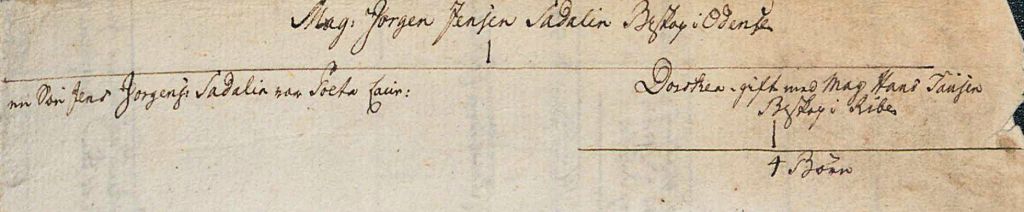 Mag: Jörgen Jensen Sadalin Biskop i Odense
en Søn Jens Jörgens: Sadalin var Poeta Laur:
Dorthea gift med Mag Hans Tausen
Biskop i Ribe
4 Börn